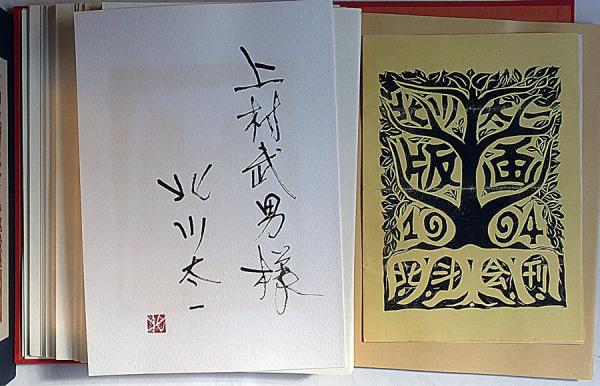 上村武男様
北川太一
北川太一
版画
1994
北斗会刊